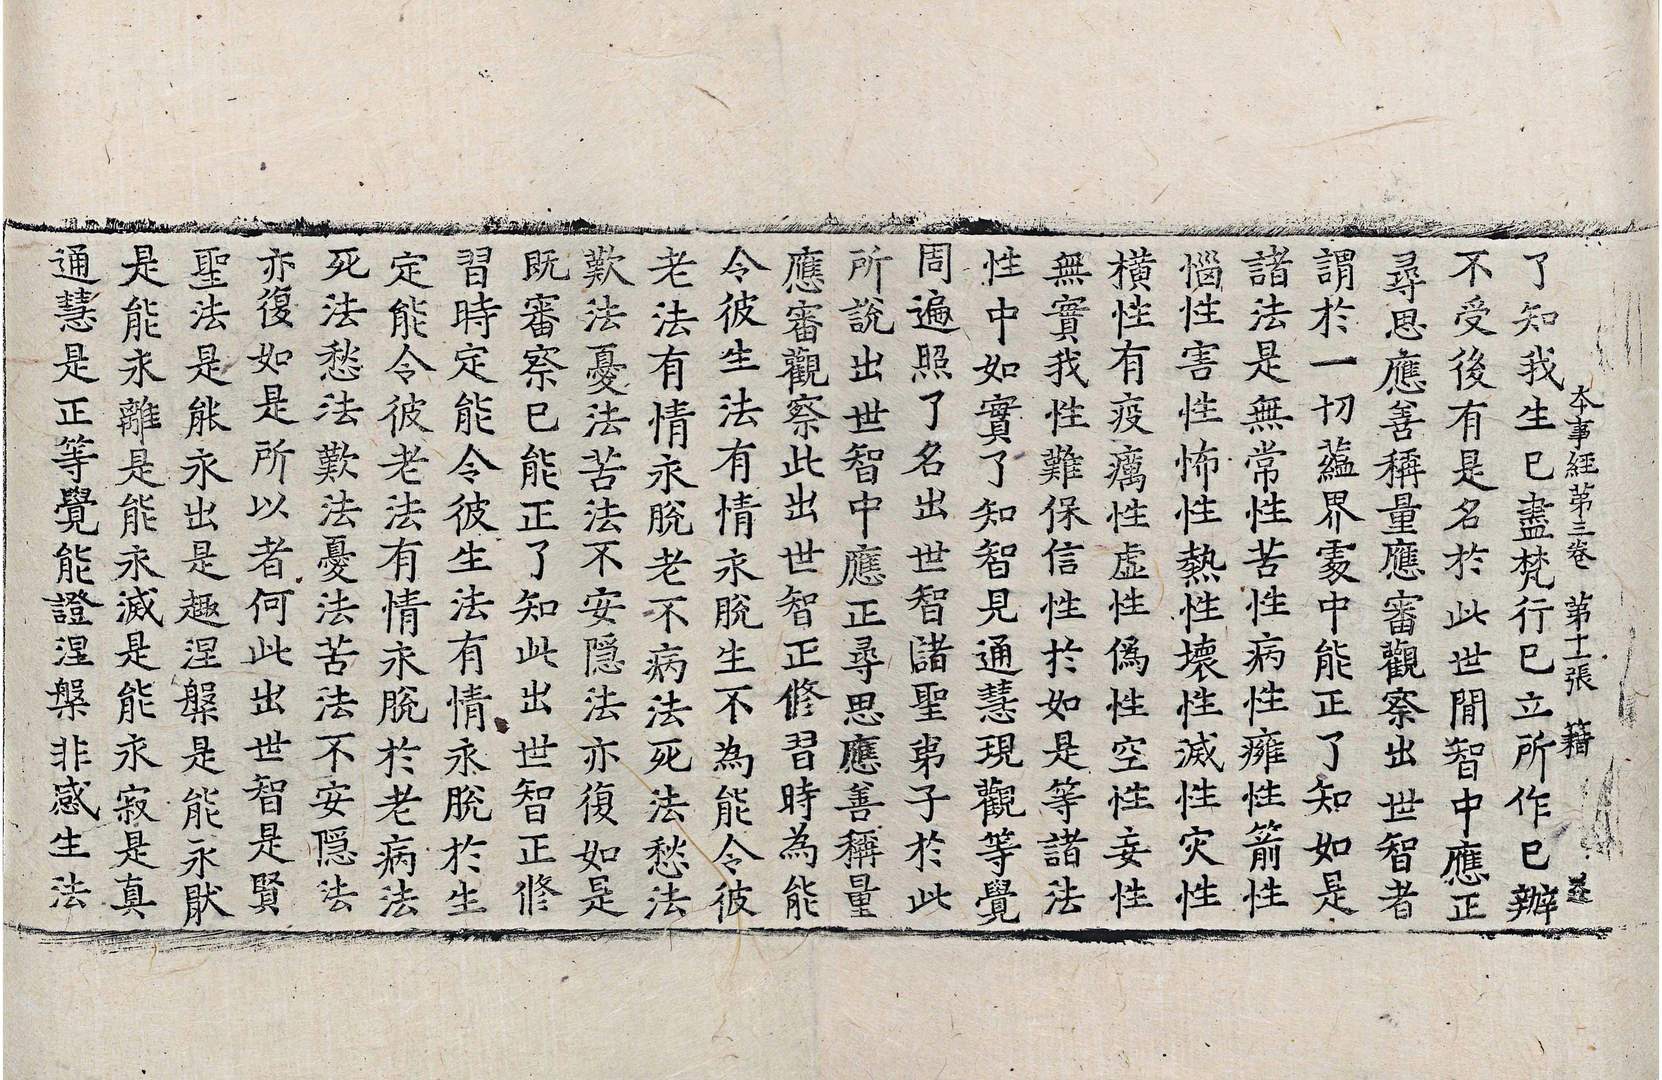 本事經第三卷 第十一張 籍
了知我生已盡梵行已立所作已辦
不受後有是名於此世間智中應正
尋思應善稱量應審觀察出世智者
謂於一切蘊界處中能正了知如是
諸法是無常性苦性病性癰性箭性
惱性害性怖性熱性壞性滅性灾性
橫性有疫癘性虛性偽性空性妄性
無實我性難保信性於如是等諸法
性中如實了知智見通慧現觀等覺
周遍照了名出世智諸聖弟子於此
所說出世智中應正尋思應善稱量
應審觀察此出世智正修習時為能
令彼生法有情永脫生不為能令彼
老法有情永脫老不病法死法愁法
歎法憂法苦法不安隱法亦復如是
既審察已能正了知此出世智正修
習時定能令彼生法有情永脫於生
定能令彼老法有情永脫於老病法
死法愁法歎法憂法苦法不安隱法
亦復如是所以者何此出世智是賢
聖法是能永出是趣涅槃是能永猒
是能永離是能永滅是能永寂是真
通慧是正等覺能證涅槃非感生法